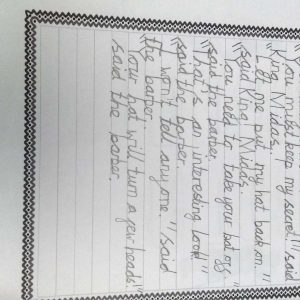 "You must keep my secret!" said
King Midas.
"Let me put my hat back on."
said King Midas.
"You need to take your hat off."
said the barber.
"That's an interesting look!"
said the barber.
"I won't tell anyone." said
the barber.
"Your hat will turn a few heads!"
said the barber.